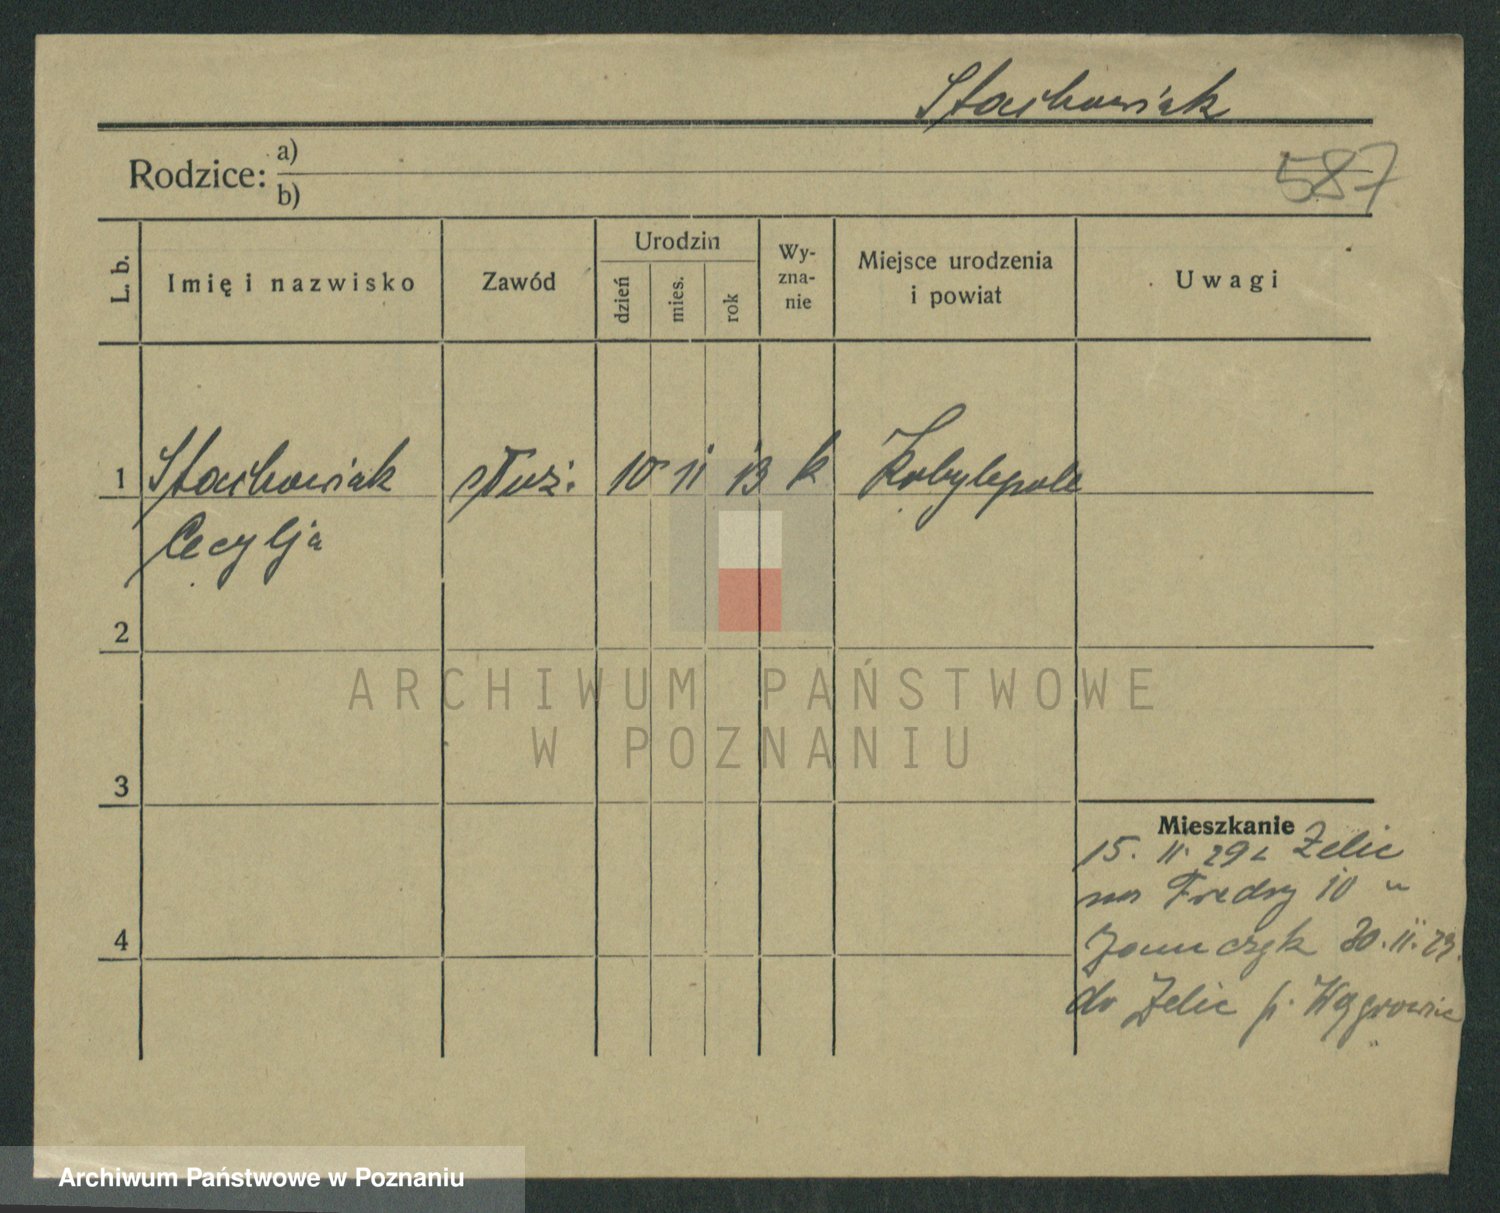 Stachowiak
Rodzice: a)
b)
587
L. b.
Imię i nazwisko
Zawód
Urodzin
dzień
mies.
rok
Wy-
zna-
nie
Miejsce urodzenia
i powiat
Uwagi
1 Stachowiak służ. 10 11 13 k Kobylepole
Cecylja
2
3
4
Mieszkanie
15. 11. 29 z Zelic
na Fredry 10 u
30. 11. 29.
do Zelic p. Wągrowiec
ARCHIWUM PAŃSTWOWE
W POZNANIU
Archiwum Państwowe w Poznaniu